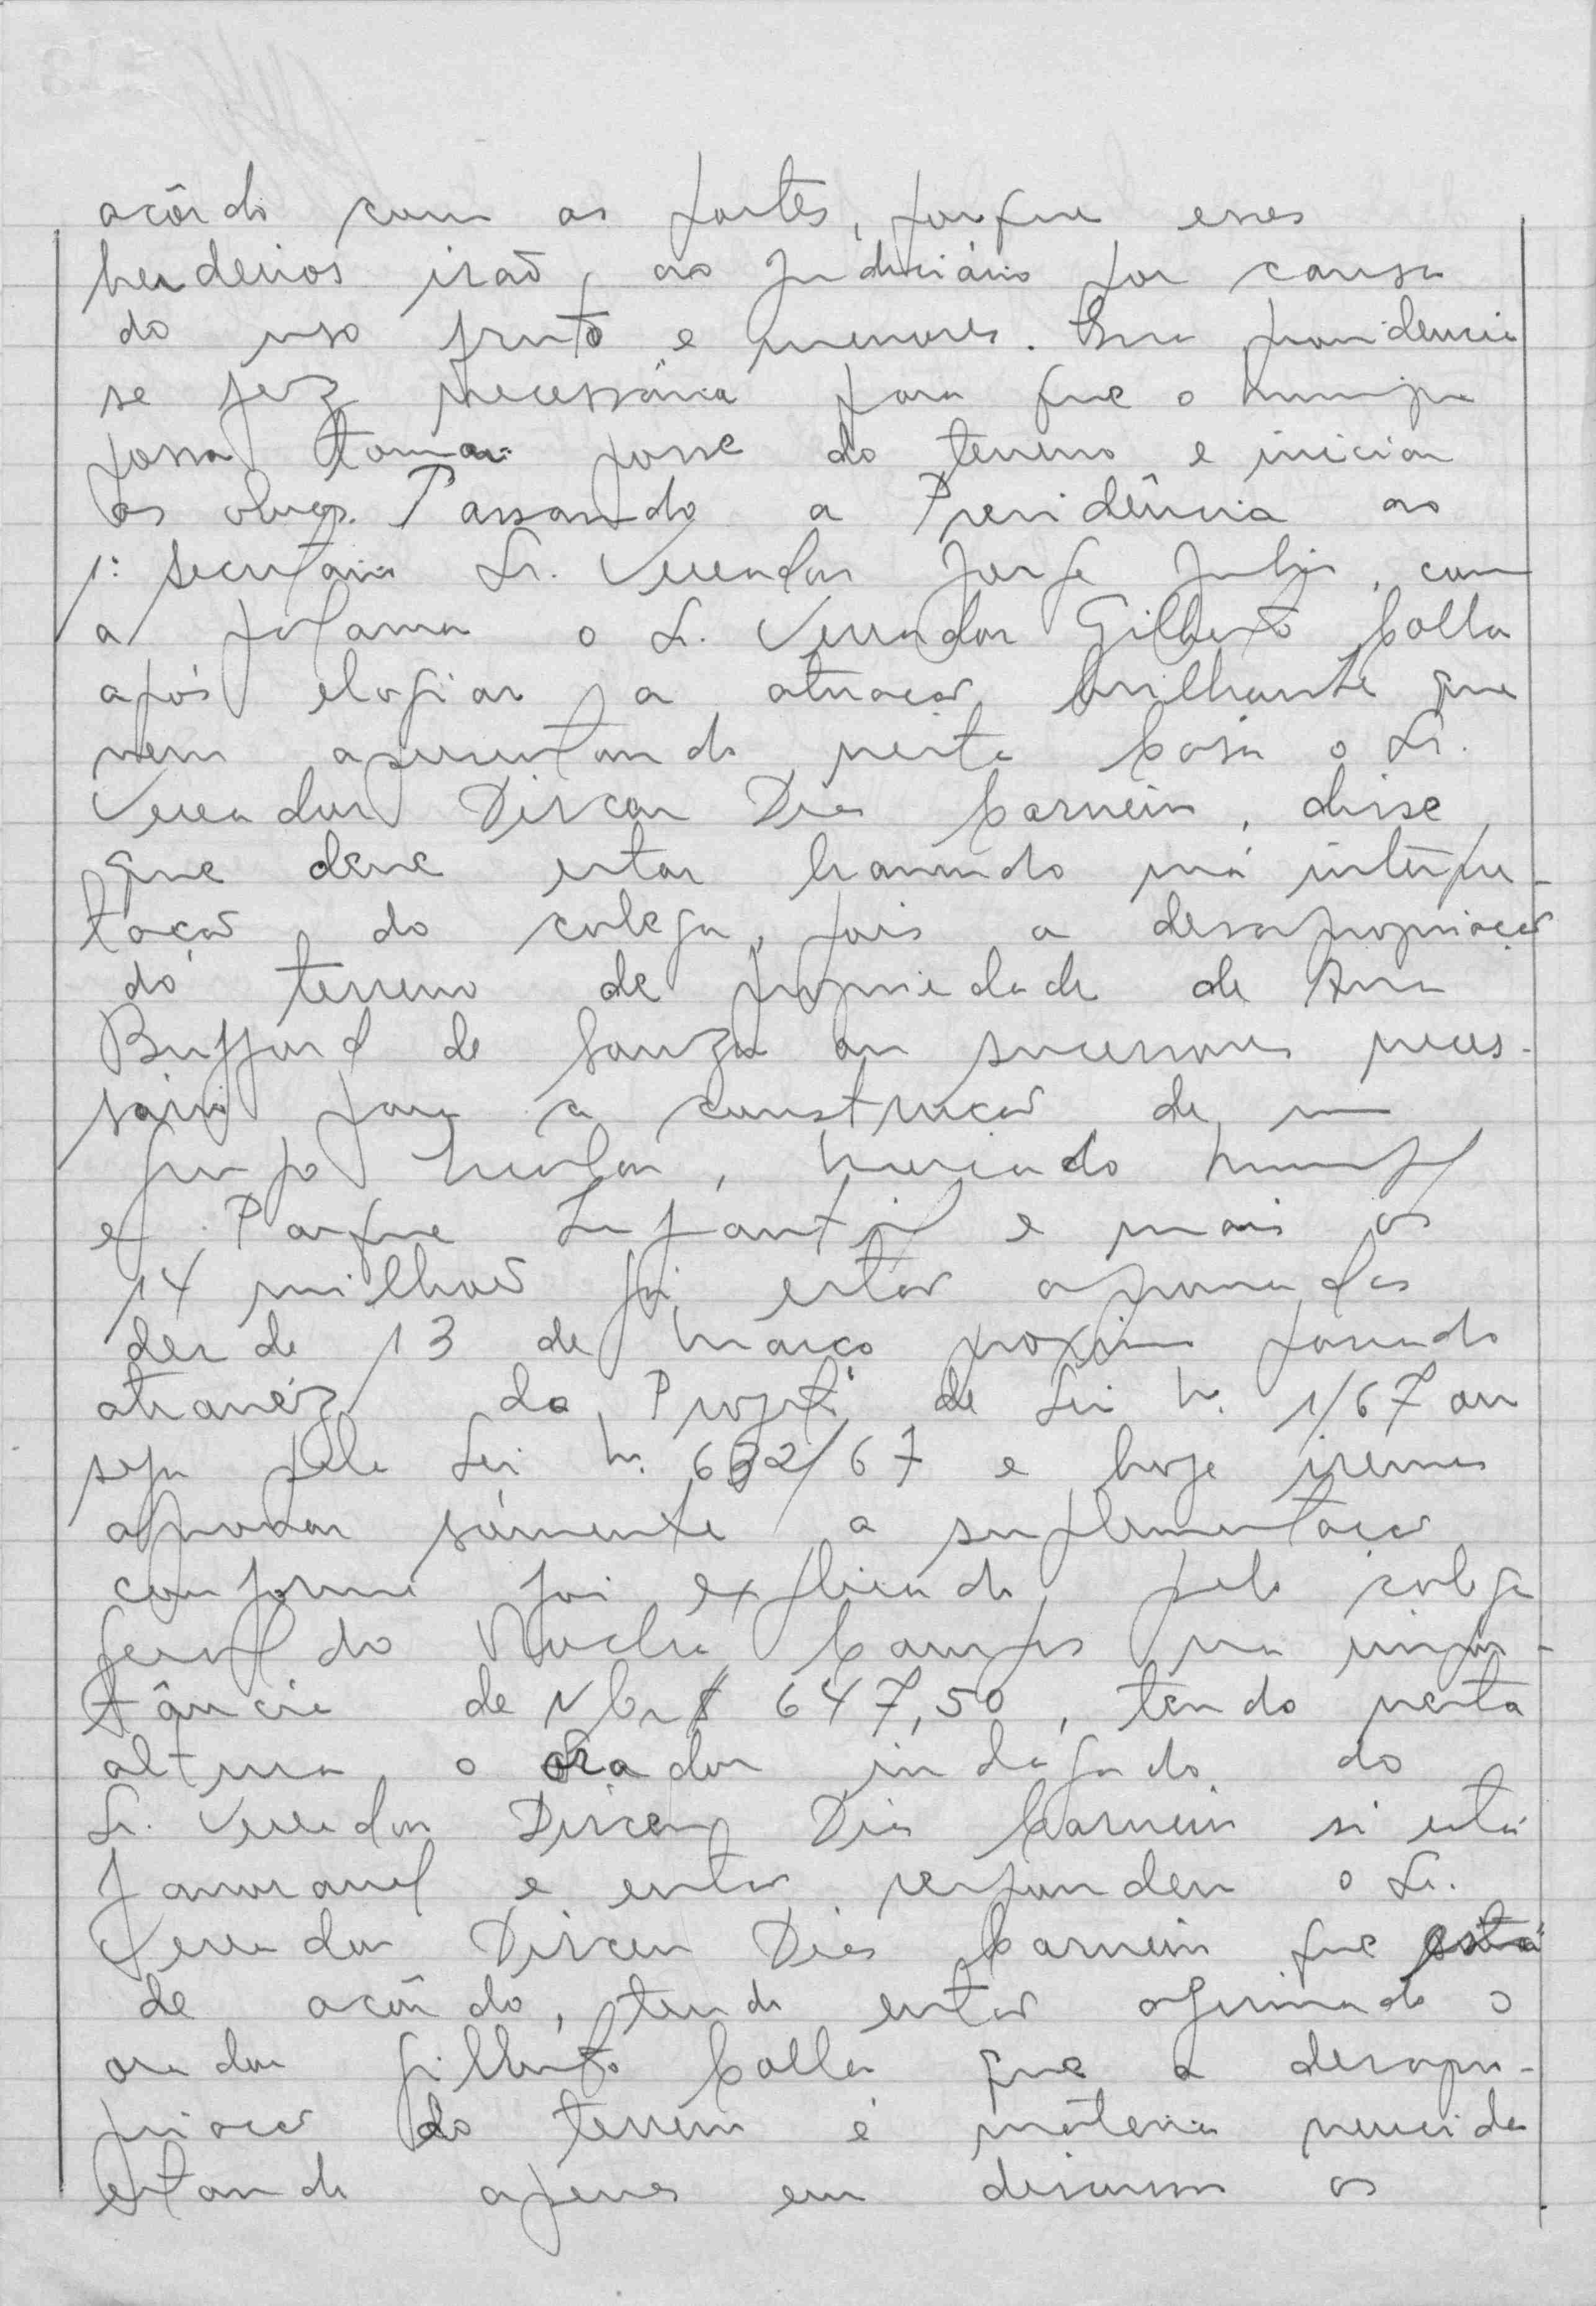 acôrdo com as partes, porque esses
herdeiros irão, ao Judiciário por causa
do uso fruto e menores. Essa providencia
se fez necessária para que o
possa tomar posse do terreno e iniciar
as obras. Passando a Presidência ao
1º secretario Sr. Vereador Jorge Julio, com
a palavra o Sr. Vereador Gilberto Colla
após elogiar a atuação brilhante que
vem apresentando nesta Casa o Sr.
Vereador Dirceu Dias Carneiro, disse
que deve estar havendo má interpre-
tação do colega, pois a desapropriação
do terreno de propriedade de Ana
de Souza ou sucessores neces-
sário para a construção de um
Grupo Escolar, Mercado Municipal
e Parque Infantil e mais os
14 milhões já estão aprovados
desde 13 de Março proximo passado
atravéz do Projeto de Lei n. 1/67 ou
seja pela Lei n. 632/67 e hoje iremos
aprovar sòmente a suplementação
conforme foi explicado pelo colega
Geraldo Rocha Campos na impor-
tância de NCr$ 647,50, tendo nesta
altura o orador indagado do
Sr. Vereador Dirceu Dias Carneiro si está
favoravel e então respondeu o Sr.
Vereador Dirceu Dias Carneiro que está
de acôrdo, tendo então afirmado o
orador Gilberto Colla que a desapro-
priação do terreno é matéria vencida
estando apenas em discussão os